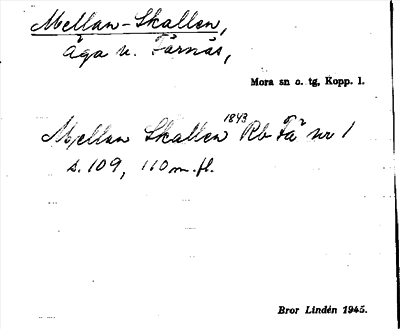 Mellan-Skallen,
äga n. Färnäs,
Mora sn o. tg, Kopp. l.
Mjellan Skallen 1843 Rb Fä² nr 1
s. 109, 110 m. fl.
Bror Lindén 1945.